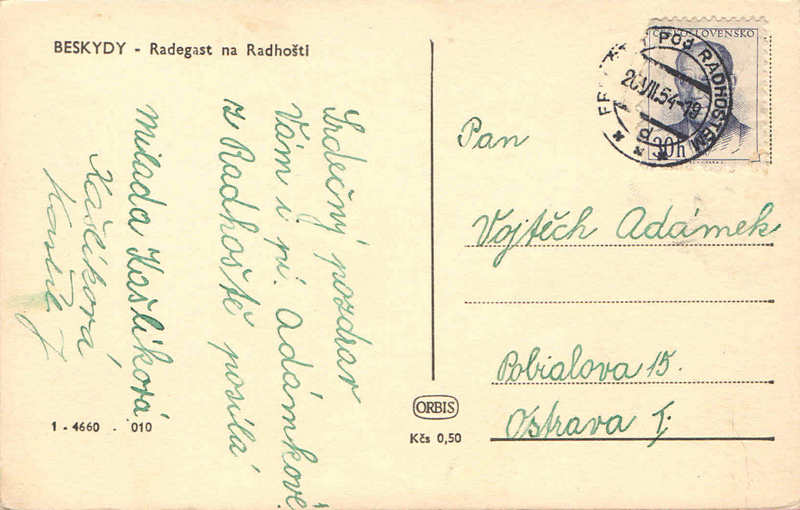 BESKYDY - Radegast na Radhošti
Srdečný pozdrav
Vám i pí. Adámkové
z Radhoště posílá
Milada Kašlíková
Kašlíková
1 - 4660 - 010
ORBIS
Kčs 0,50
ČESKOSLOVENSKO
30h
POD RADHOŠTĚM
20.VII.54-18
Pan
Vojtěch Adámek
Pobialova 15.
Ostrava I.